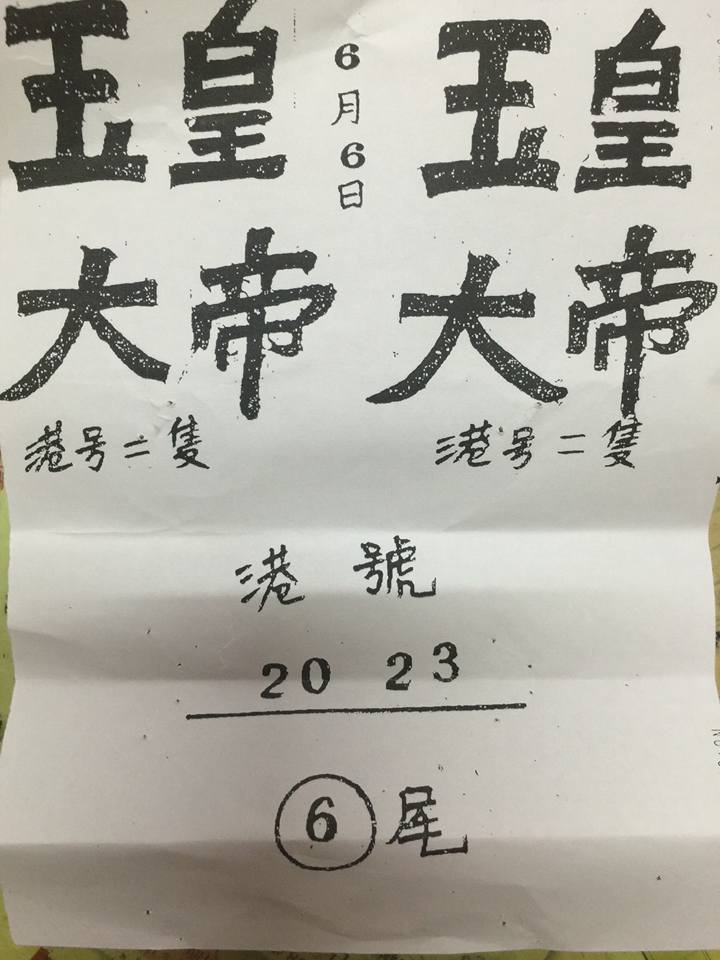 玉皇 6月6日 玉皇
大帝 大帝
港号二隻 港号二隻
港號
20 23
6尾